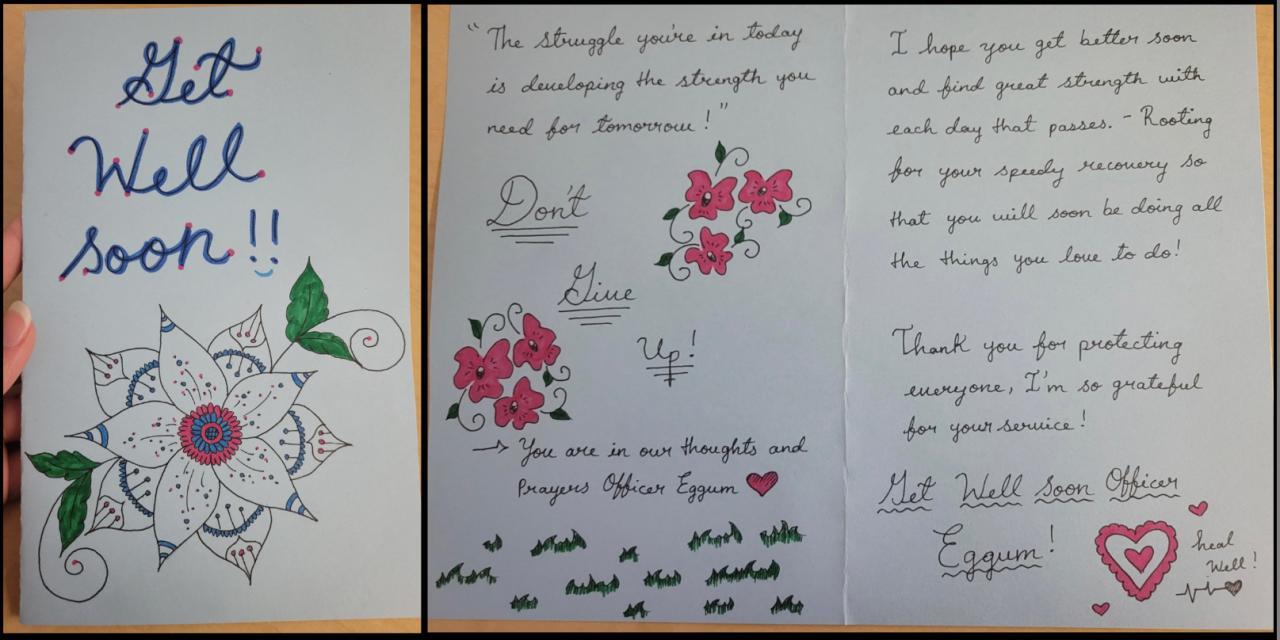 Get
Well
soon!!
"The struggle you're in today
is developing the strength you
need for tomorrow!"
Don't
Give
Up!
→ You are in our thoughts and
Prayers Officer Eggum
I hope you get better soon
and find great strength with
each day that passes. - Rooting
for your speedy recovery so
that you will soon be doing all
the things you love to do!
Thank you for protecting
everyone, I'm so grateful
for your service!
Get Well Soon Officer
Eggum!
heal
Well!